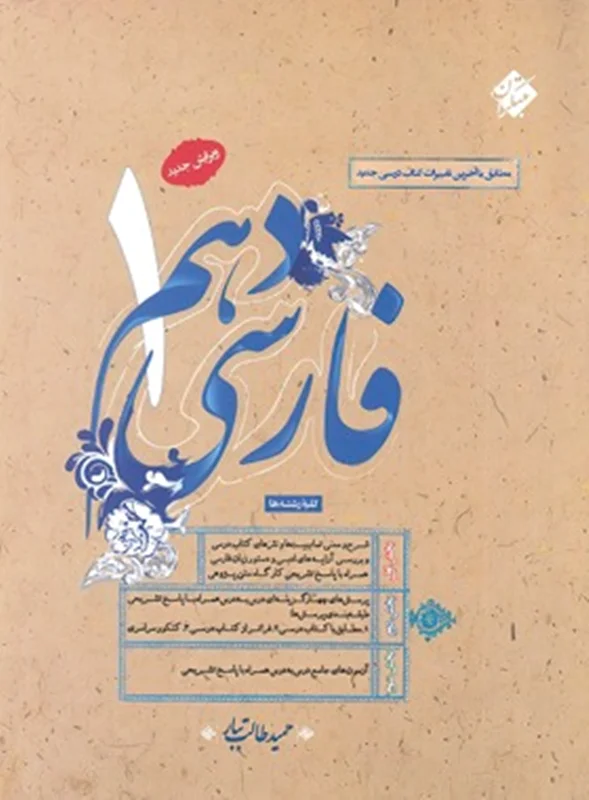 مبتکران
مطابق با آخرین تغییرات کتاب درسی جدید
ویرایش جدید
فارسی دهم ۱
کلیهٔ رشته‌ها
شرح و معنی تمام بیت‌ها و نثرهای کتاب درسی
و بررسی آرایه‌های ادبی و دستور زبان فارسی
همراه با پاسخ تشریحی کارگاه متن‌پژوهی
پرسش‌های چهارگزینه‌ای درس به درس همراه با پاسخ تشریحی
طبقه‌بندی پرسش‌ها
۱. مطابق با کتاب درسی ۲. فراتر از کتاب درسی ۳. کنکور سراسری
آزمون‌های جامع درس به درس همراه با پاسخ تشریحی
حمید طالب تبار